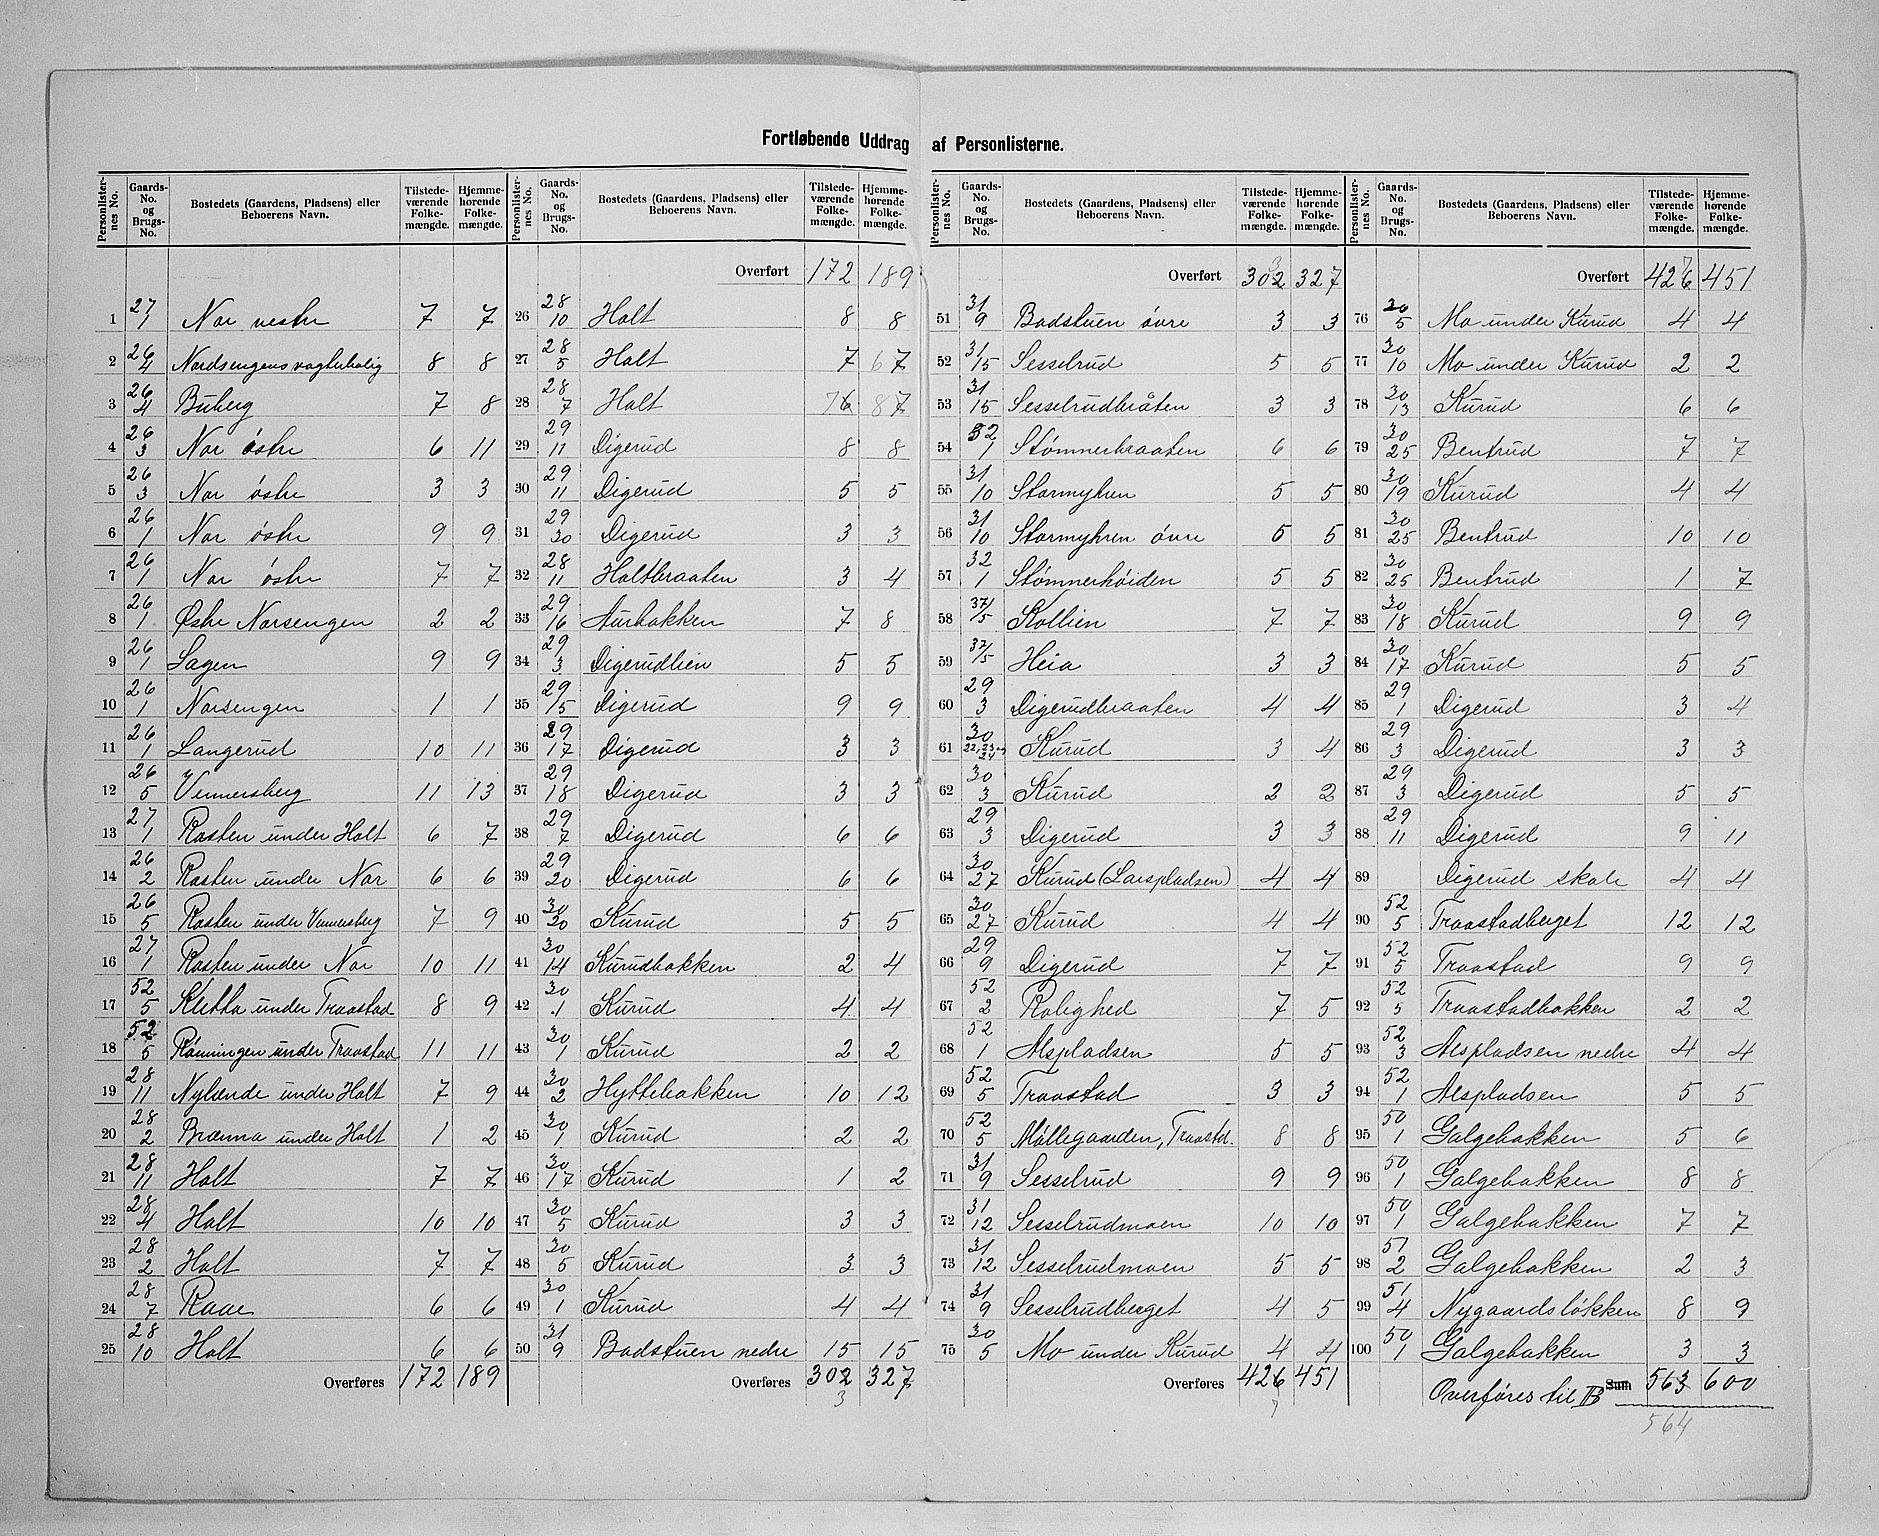 Fortløbende Uddrag af Personlisterne.
Personlisternes No. | Gaards-No. og Brugs-No. | Bostedets (Gaardens, Pladsens) eller Beboerens Navn. | Tilstedeværende Folkemængde. | Hjemmehørende Folkemængde.
1 27/1 Nor vestre 7 7
2 26/4 Nordsengens vogterbolig 8 8
3 26/4 Buberg 7 8
4 26/3 Nor østre 6 11
5 26/3 Nor østre 3 3
6 26/1 Nor østre 9 9
7 26/1 Nor østre 7 7
8 26/1 Østre Norsengen 2 2
9 26/1 Sagen 9 9
10 26/1 Norsengen 1 1
11 26/1 Langerud 10 11
12 26/5 Vennersberg 11 13
13 27/1 Rasten under Holt 6 7
14 26/2 Rasten under Nor 6 6
15 26/5 Rasten under Vennersberg 7 9
16 27/1 Rasten under Nor 10 11
17 52/5 Kletta under Traastad 8 9
18 52/5 Rønningen under Traastad 11 11
19 28/11 Nylænde under Holt 7 9
20 28/2 Brænna under Holt 1 2
21 28/11 Holt 7 7
22 28/4 Holt 10 10
23 28/2 Holt 7 7
24 28/7 Raae 6 6
25 28/10 Holt 6 6
Overføres 172 189
Personlisternes No. | Gaards-No. og Brugs-No. | Bostedets (Gaardens, Pladsens) eller Beboerens Navn. | Tilstedeværende Folkemængde. | Hjemmehørende Folkemængde.
Overført 172 189
26 28/10 Holt 8 8
27 28/5 Holt 7 6 7
28 28/7 Holt 7 6 8 7
29 29/11 Digerud 8 8
30 29/11 Digerud 5 5
31 29/30 Digerud 3 3
32 28/11 Holtbraaten 3 4
33 29/16 Aurbakken 7 8
34 29/3 Digerudlien 5 5
35 29/15 Digerud 9 9
36 29/17 Digerud 3 3
37 29/18 Digerud 3 3
38 29/7 Digerud 6 6
39 29/20 Digerud 6 6
40 30/20 Kurud 5 5
41 30/14 Kurudbakken 2 4
42 30/1 Kurud 4 4
43 30/1 Kurud 2 2
44 30/2 Hyttebakken 10 12
45 30/1 Kurud 2 2
46 30/17 Kurud 1 2
47 30/5 Kurud 3 3
48 30/5 Kurud 3 3
49 30/1 Kurud 4 4
50 31/9 Badstuen nedre 15 15
Overføres 302 327
3
Personlisternes No. | Gaards-No. og Brugs-No. | Bostedets (Gaardens, Pladsens) eller Beboerens Navn. | Tilstedeværende Folkemængde. | Hjemmehørende Folkemængde.
3
Overført 302 327
51 31/9 Badstuen øvre 3 3
52 31/15 Sesselrud 5 5
53 31/15 Sesselrudbråten 3 3
54 32/1 Stømnerbraaten 6 6
55 31/10 Stormyhren 5 5
56 31/10 Stormyhren øvre 5 5
57 32/1 Stømnerhøiden 5 5
58 37/1/5 Kollien 7 7
59 37/15 Heia 3 3
60 29/3 Digerudbraaten 4 4
61 30/22,23 24 Kurud 3 4
62 30/3 Kurud 2 2
63 29/3 Digerud 3 3
64 30/27 Kurud (Larspladsen) 4 4
65 30/27 Kurud 4 4
66 29/9 Digerud 7 7
67 52/2 Rolighed 7 5
68 52/1 Alspladsen 5 5
69 52/5 Traastad 3 3
70 52/5 Møllegaarden, Traastd. 8 8
71 31/9 Sesselrud 9 9
72 31/12 Sesselrudmoen 10 10
73 31/12 Sesselrudmoen 5 5
74 31/9 Sesselrudberget 4 5
75 30/5 Mo under Kurud 4 4
Overføres 426 451
7
Personlisternes No. | Gaards-No. og Brugs-No. | Bostedets (Gaardens, Pladsens) eller Beboerens Navn. | Tilstedeværende Folkemængde. | Hjemmehørende Folkemængde.
7
Overført 426 451
76 30/5 Mo under Kurud 4 4
77 30/10 Mo under Kurud 2 2
78 30/13 Kurud 6 6
79 30/25 Bentrud 7 7
80 30/19 Kurud 4 4
81 30/25 Bentrud 10 10
82 30/25 Bentrud 1 7
83 30/18 Kurud 9 9
84 30/17 Kurud 5 5
85 29/1 Digerud 3 4
86 29/3 Digerud 3 3
87 29/3 Digerud 5 5
88 29/11 Digerud 9 11
89 Digerud skole 4 4
90 52/5 Traastadberget 12 12
91 52/5 Traastad 9 9
92 52/5 Traastadbakken 2 2
93 52/3 Alspladsen nedre 4 4
94 52/1 Alspladsen 5 5
95 50/1 Galgebakken 5 6
96 50/1 Galgebakken 8 8
97 50/1 Galgebakken 7 7
98 51/2 Galgebakken 2 3
99 51/4 Nygaardsløkken 8 9
100 50/1 Galgebakken 3 3
Overføres til B Sum 563 600
564